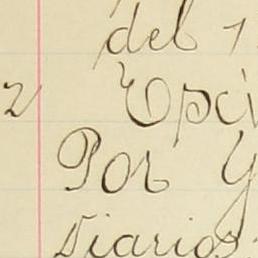 del 1
2 Opci
Por Y
Diarios